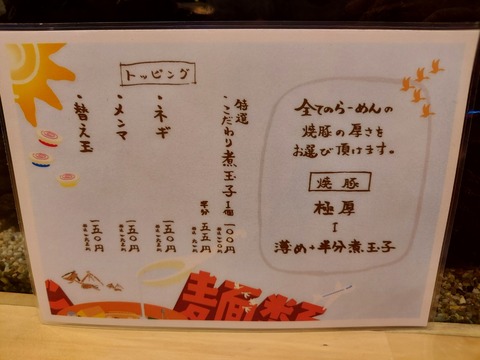 全てのらーめんの
焼豚の厚さを
お選び頂けます。
焼豚
極厚
薄め+半分煮玉子
トッピング
特選
・こだわり煮玉子1個 一〇〇円
半分 五五円
・ネギ 一五〇円
・メンマ 一五〇円
・替え玉 一五〇円